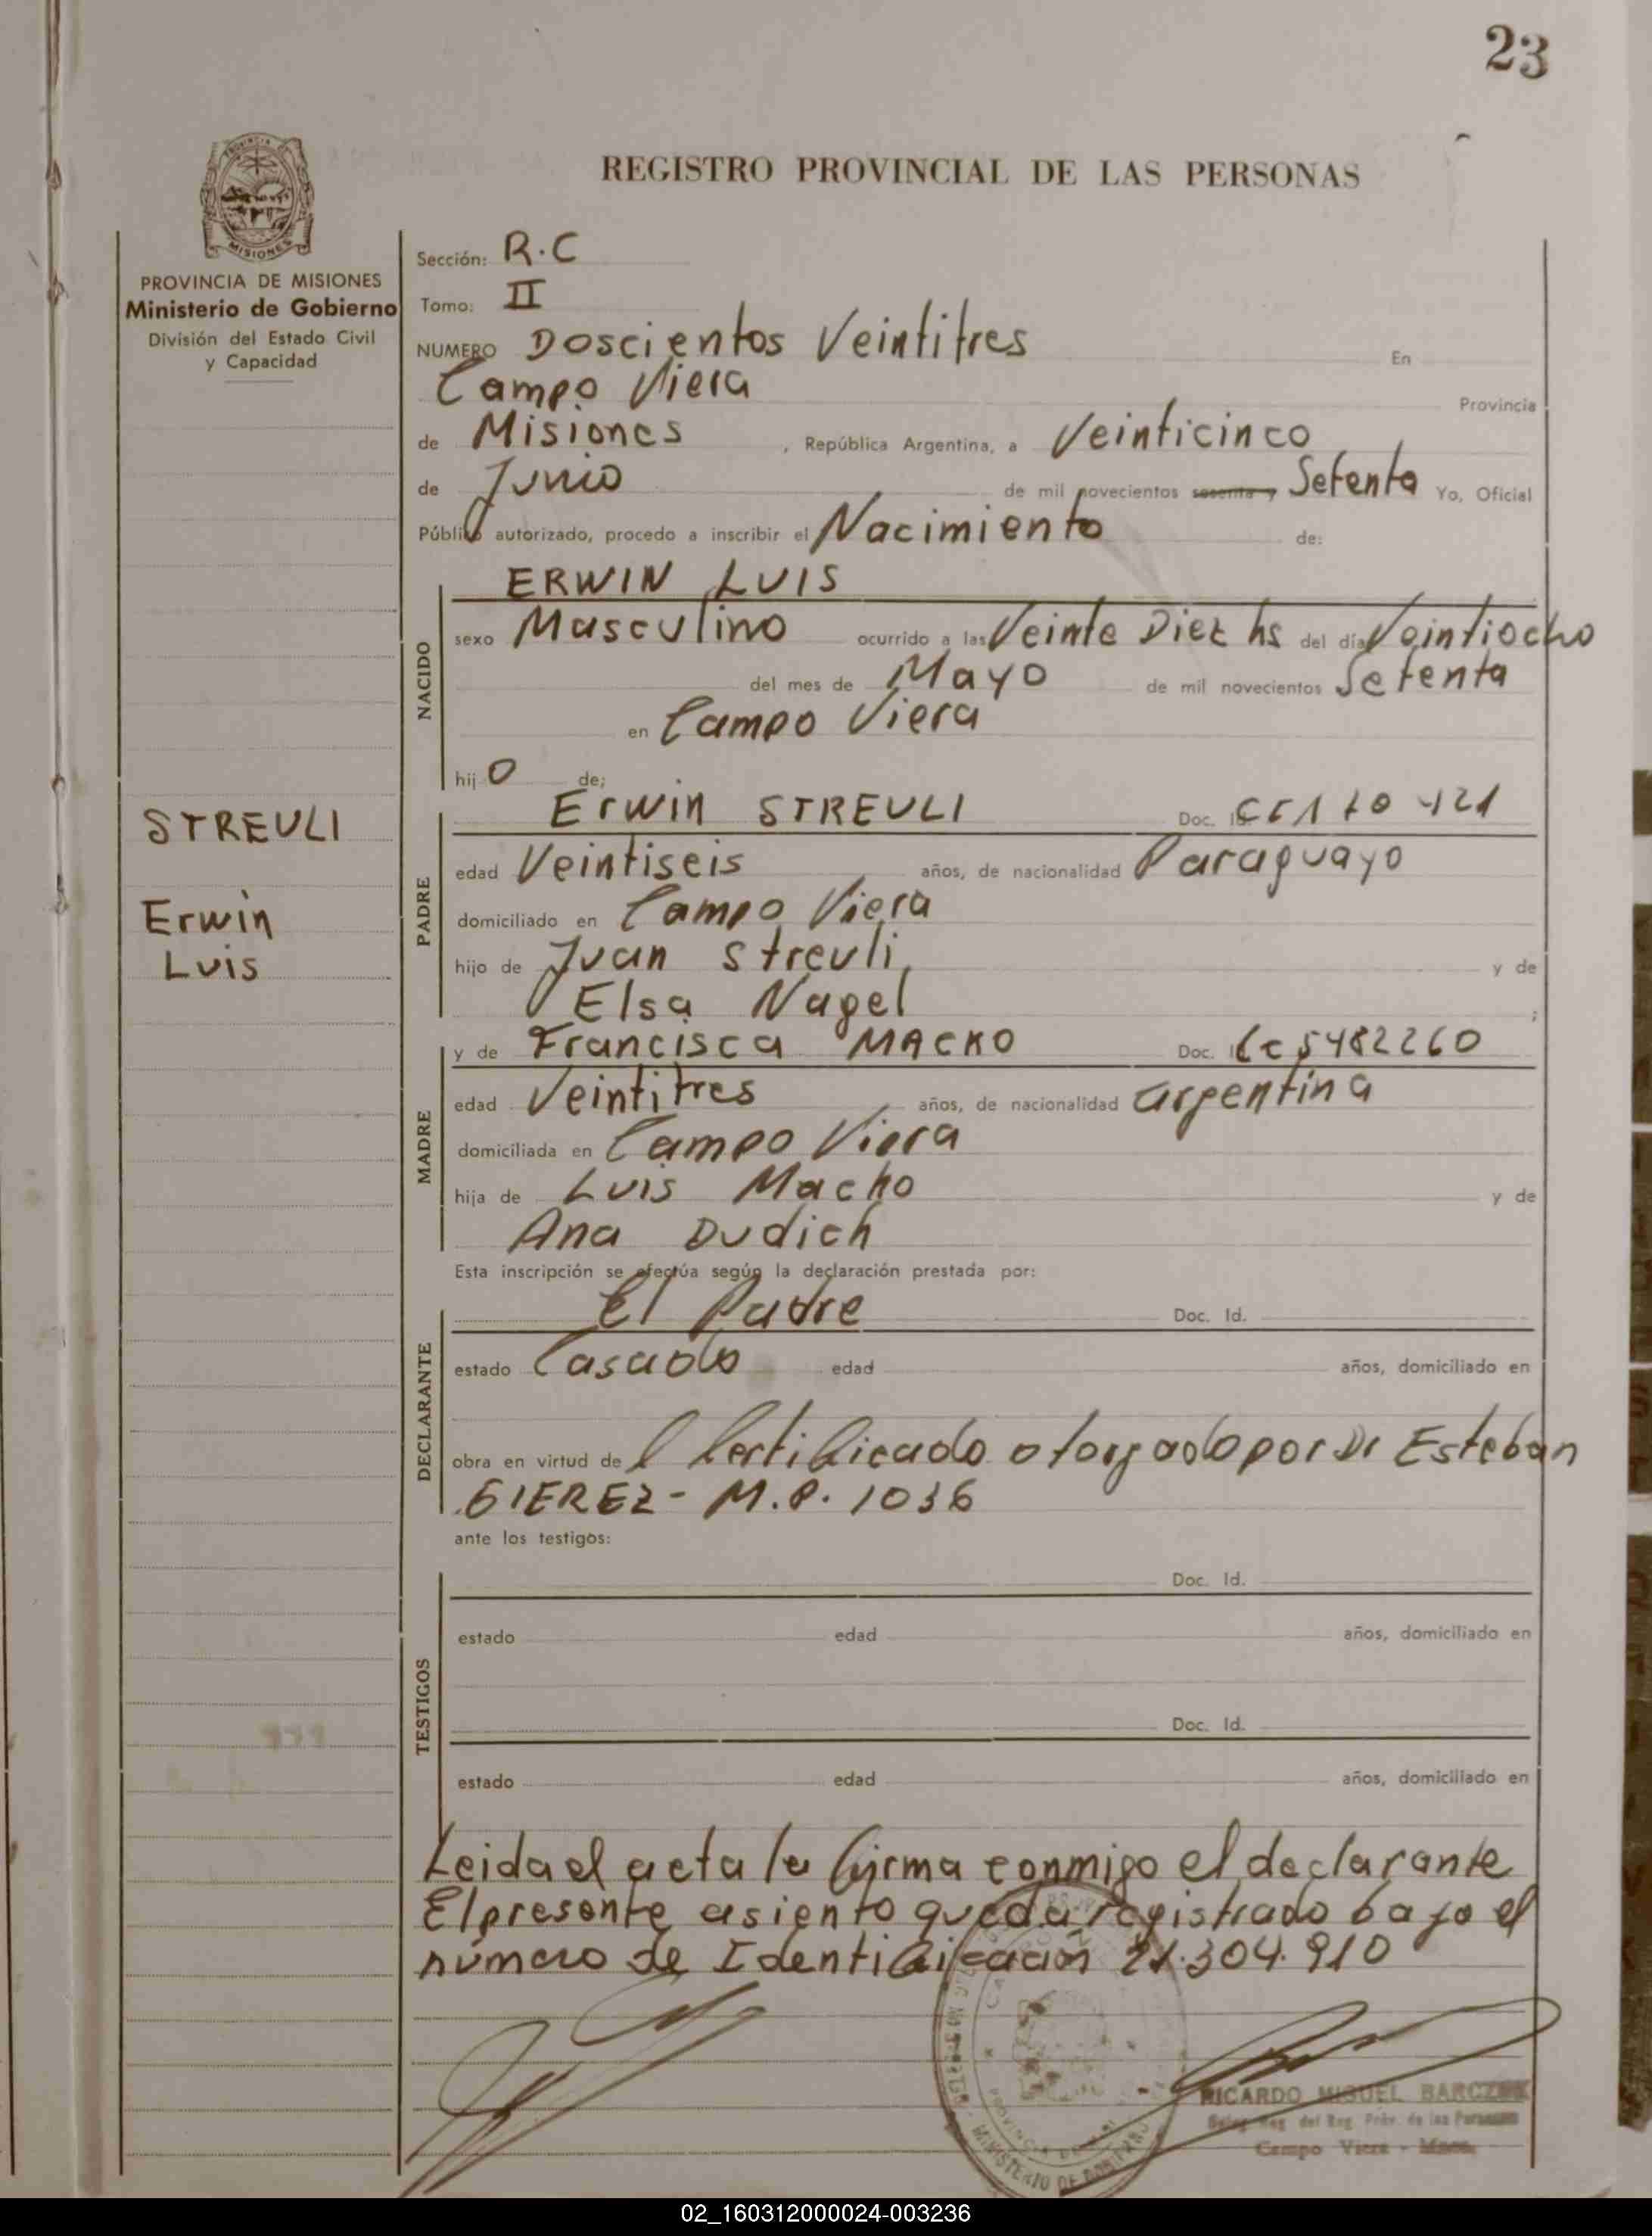 23
REGISTRO PROVINCIAL DE LAS PERSONAS
MISIONES
PROVINCIA DE MISIONES
Ministerio de Gobierno
División del Estado Civil
y Capacidad
Sección: R.C
Tomo: II
NUMERO Doscientos Veintitres En
Campo Viera Provincia
de Misiones , República Argentina, a Veinticinco
de Junio de mil novecientos sesenta y Setenta Yo, Oficial
Público autorizado, procedo a inscribir el Nacimiento de:
NACIDO
ERWIN LUIS
sexo Masculino ocurrido a las Veinte Diez hs del día Veintiocho
del mes de Mayo de mil novecientos Setenta
en Campo Viera
hij o de;
STREULI
Erwin
Luis
PADRE
Erwin STREULI Doc.
edad Veintiseis años, de nacionalidad Paraguayo
domiciliado en Campo Viera
hijo de Juan Streuli y de
Elsa Nagel ;
MADRE
y de Francisca MACKO Doc. 5482260
edad Veintitres años, de nacionalidad argentina
domiciliada en Campo Viera
hija de Luis Macko y de
Ana Dudich
Esta inscripción se efectúa según la declaración prestada por:
DECLARANTE
El Padre Doc. Id.
estado Casado edad años, domiciliado en
obra en virtud de l Certificado otorgado por Dr Esteban
GIEREZ - M.P. 1036
ante los testigos:
TESTIGOS
Doc. Id.
estado edad años, domiciliado en
Doc. Id.
estado edad años, domiciliado en
Leida el acta la firma conmigo el declarante
El presente asiento queda registrado bajo el
número de Identificación 21.304.910
MINISTERIO DE GOBIERNO
RICARDO MIGUEL
del Reg. Prov. de las Personas
Campo Viera - Mnes.
02_160312000024-003236